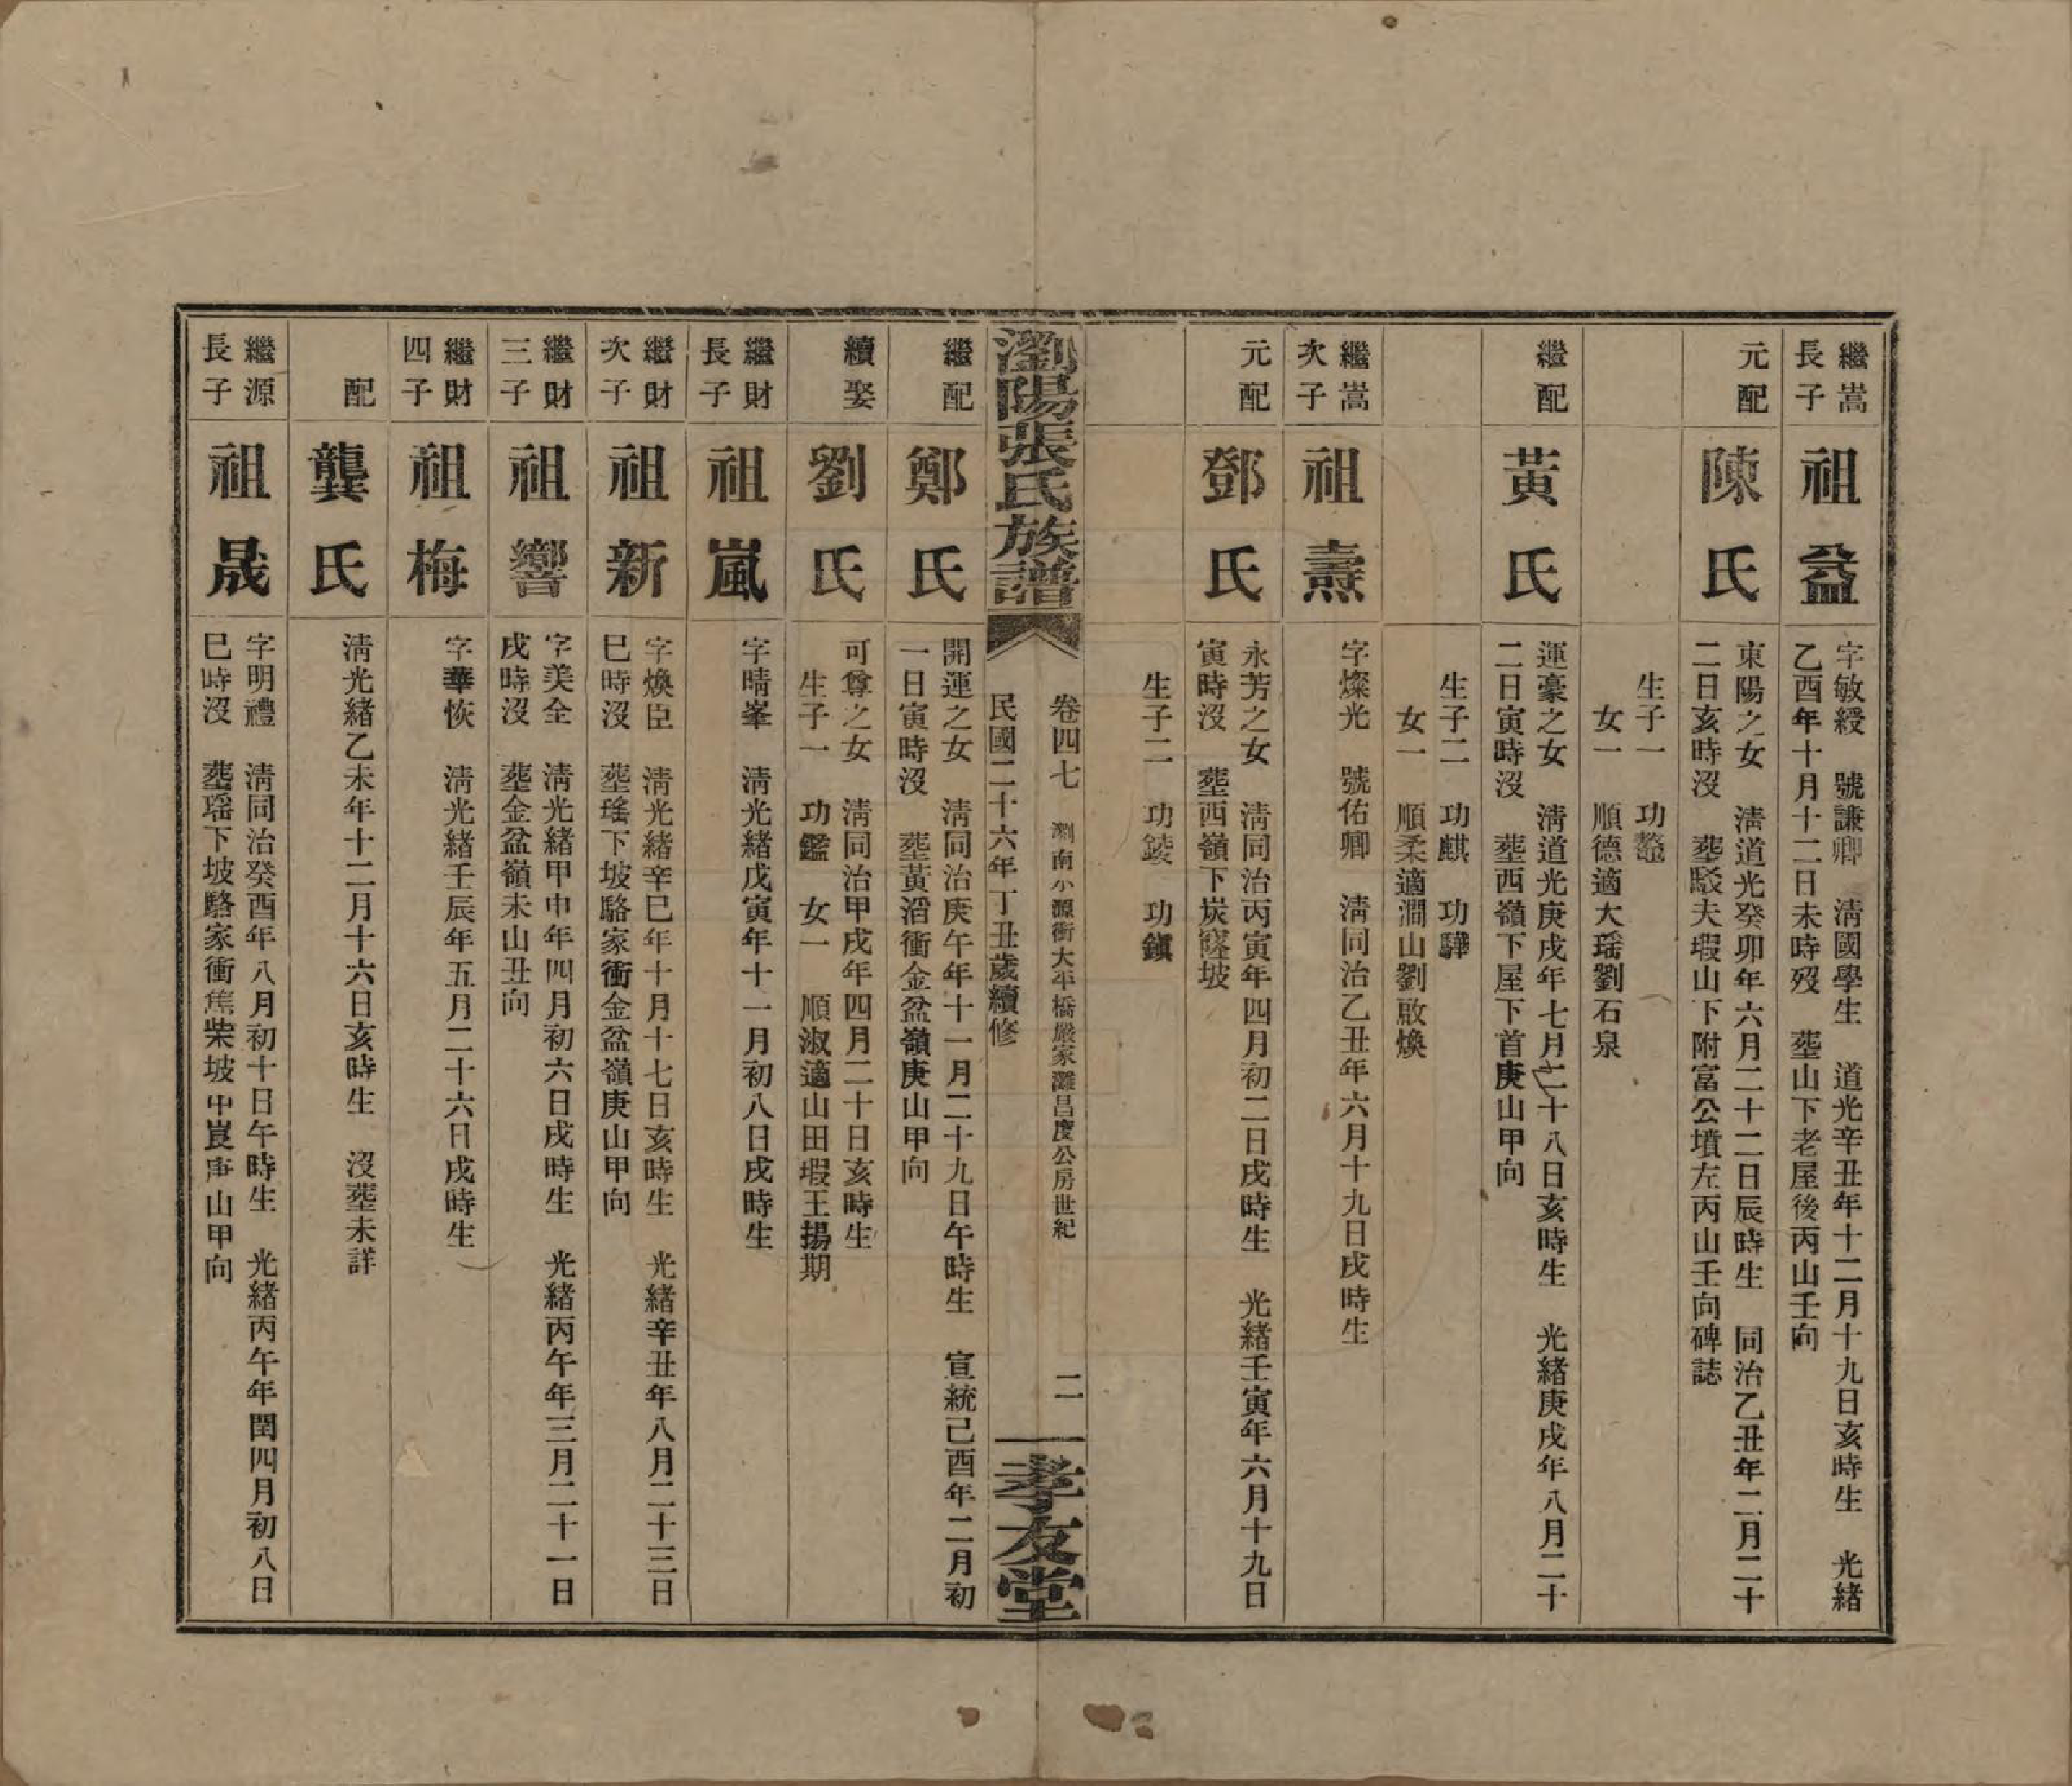 繼嵩
長子
祖益
字敏綬　號謙卿　清國學生　道光辛丑年十二月十九日亥時生　光緒
乙酉年十月十二日未時歿　塟山下老屋後丙山壬向
元配
陳氏
東陽之女　清道光癸卯年六月二十二日辰時生　同治乙丑年二月二十
二日亥時沒　塟駁夫塅山下附富公墳左丙山壬向碑誌
生子一　功鼇
女一　順德適大瑶劉石泉
繼配
黃氏
運豪之女　清道光庚戌年七月二十八日亥時生　光緒庚戌年八月二十
二日寅時沒　塟西嶺下屋下首庚山甲向
生子二　功麒　功驊
女一　順柔適澗山劉啟煥
繼嵩
次子
祖燾
字燦光　號佑卿　清同治乙丑年六月十九日戌時生
元配
鄧氏
永芳之女　清同治丙寅年四月初二日戌時生　光緒壬寅年六月十九日
寅時沒　塟西嶺下炭窿坡
生子二　功錂　功鎮
瀏陽張氏族譜
卷四七　瀏南小源衝大平橋嚴家灘昌度公房世紀　二
民國二十六年丁丑歲續修
孝友堂
繼配
鄭氏
開運之女　清同治庚午年十一月二十九日午時生　宣統己酉年二月初
一日寅時沒　塟黃滔衝金盆嶺庚山甲向
續娶
劉氏
可尊之女　清同治甲戌年四月二十日亥時生
生子一　功鑑　女一　順淑適山田塅王揚期
繼財
長子
祖嵐
字晴峯　清光緒戊寅年十一月初八日戌時生
繼財
次子
祖新
字煥臣　清光緒辛巳年十月十七日亥時生　光緒辛丑年八月二十三日
巳時沒　塟瑤下坡駱家衝金盆嶺庚山甲向
繼財
三子
祖響
字美全　清光緒甲申年四月初六日戌時生　光緒丙午年三月二十一日
戌時沒　塟金盆嶺未山丑向
繼財
四子
祖梅
字華恢　清光緒壬辰年五月二十六日戌時生
配
龔氏
清光緒乙未年十二月十六日亥時生　沒塟未詳
繼源
長子
祖晟
字明禮　清同治癸酉年八月初十日午時生　光緒丙午年閏四月初八日
巳時沒　塟瑶下坡駱家衝焦柴坡中崀庚山甲向